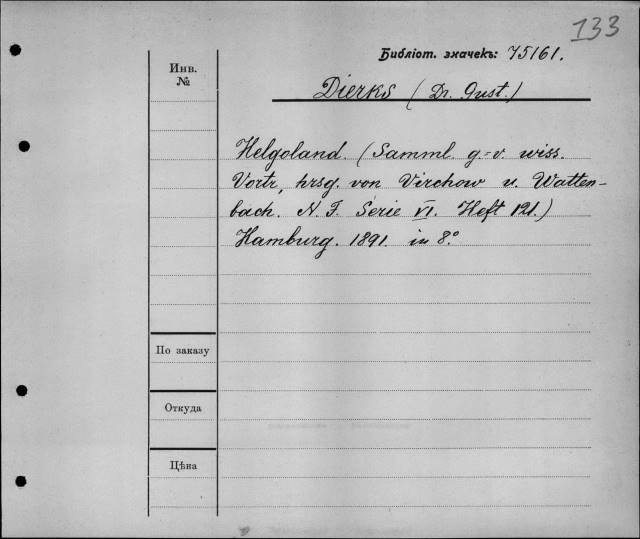 133
Библіот. значекъ: 75161.
Инв.
№
Dierks (Dr. Gust.)
Helgoland. (Samml. g.=v. wiss.
Vortr, hrsg. von Virchow u. Watten-
bach. N. F. Serie VI. Heft 121.)
Hamburg. 1891. in 8.°
По заказу
Откуда
Цѣна